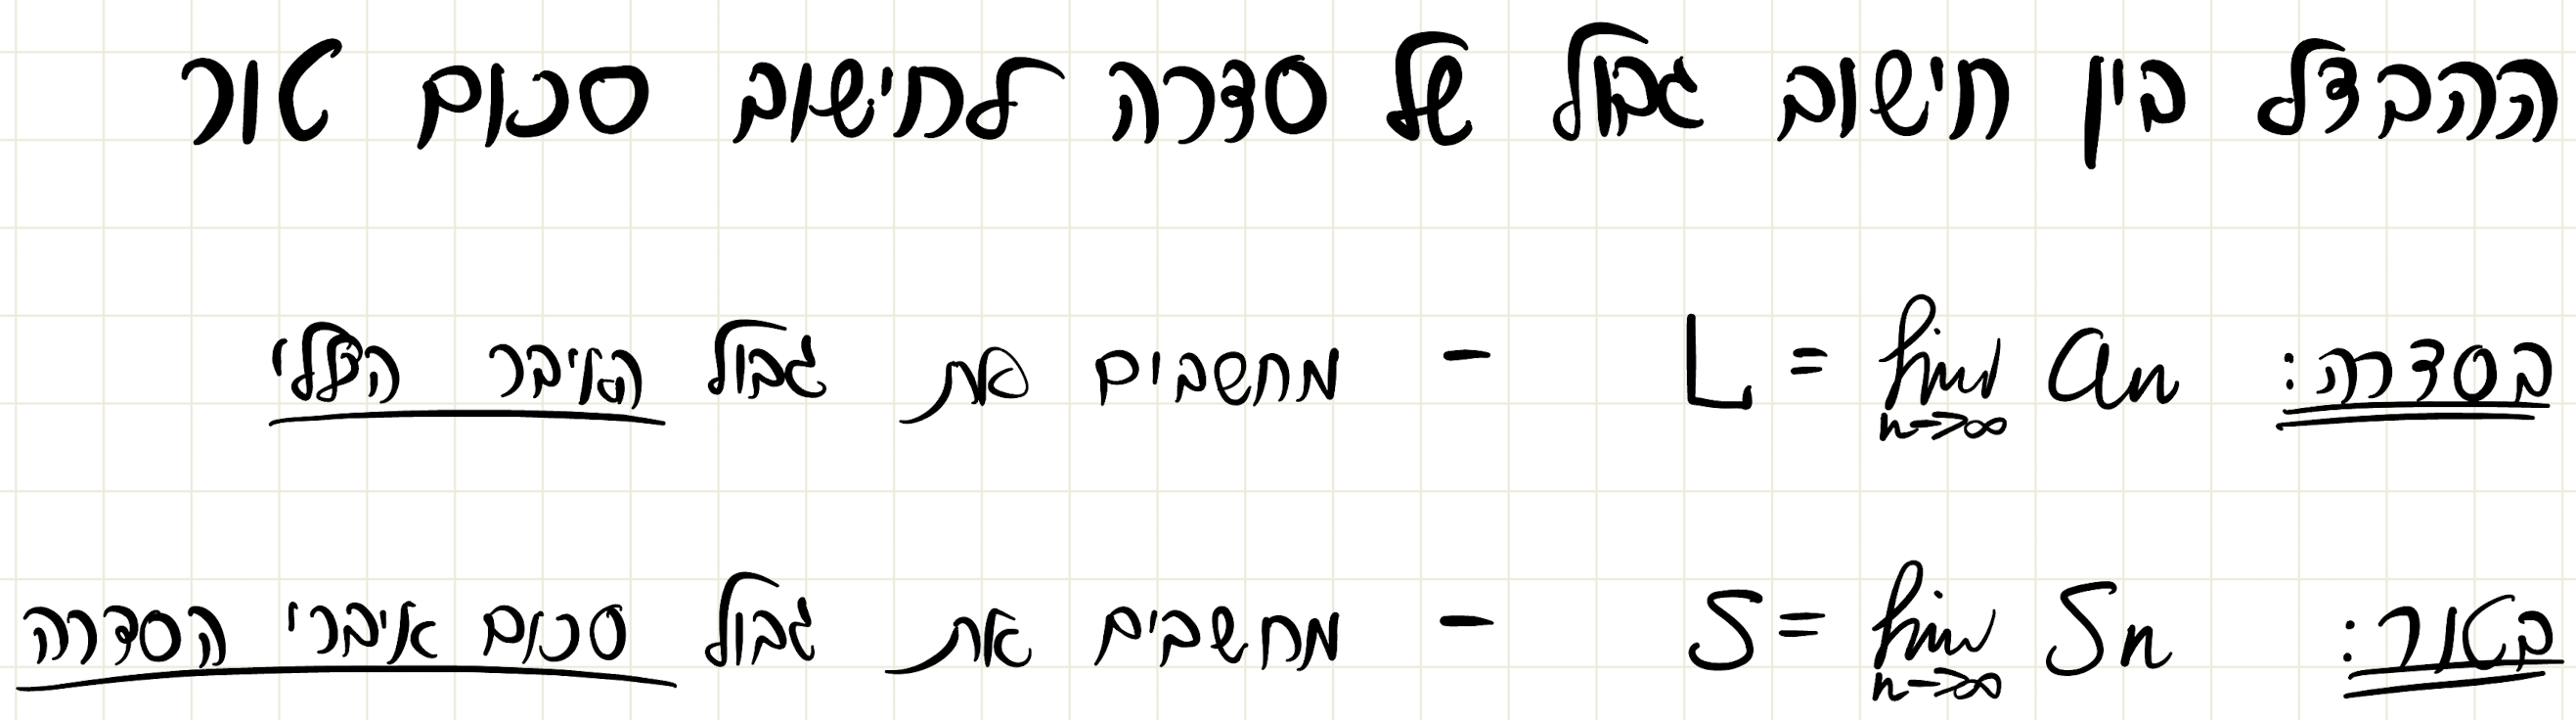 ההבדל בין חישוב גבול של סדרה לחישוב סכום טור
בסדרה: L = lim n→∞ an - מחשבים את גבול האיבר הכללי
בטור: S = lim n→∞ Sn - מחשבים את גבול סכום איברי הסדרה